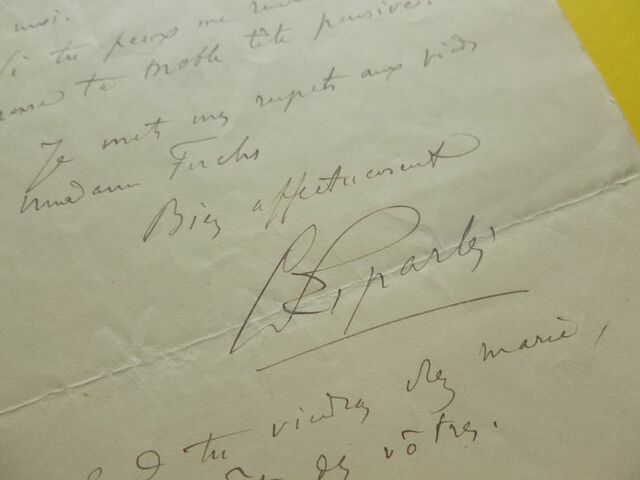 moi.
Si tu peux me
ta noble tête pensive.
Je mets mes respects aux pieds
madame Fuchs
Bien affectueusement
tu viendras chez marié,
des vôtres.